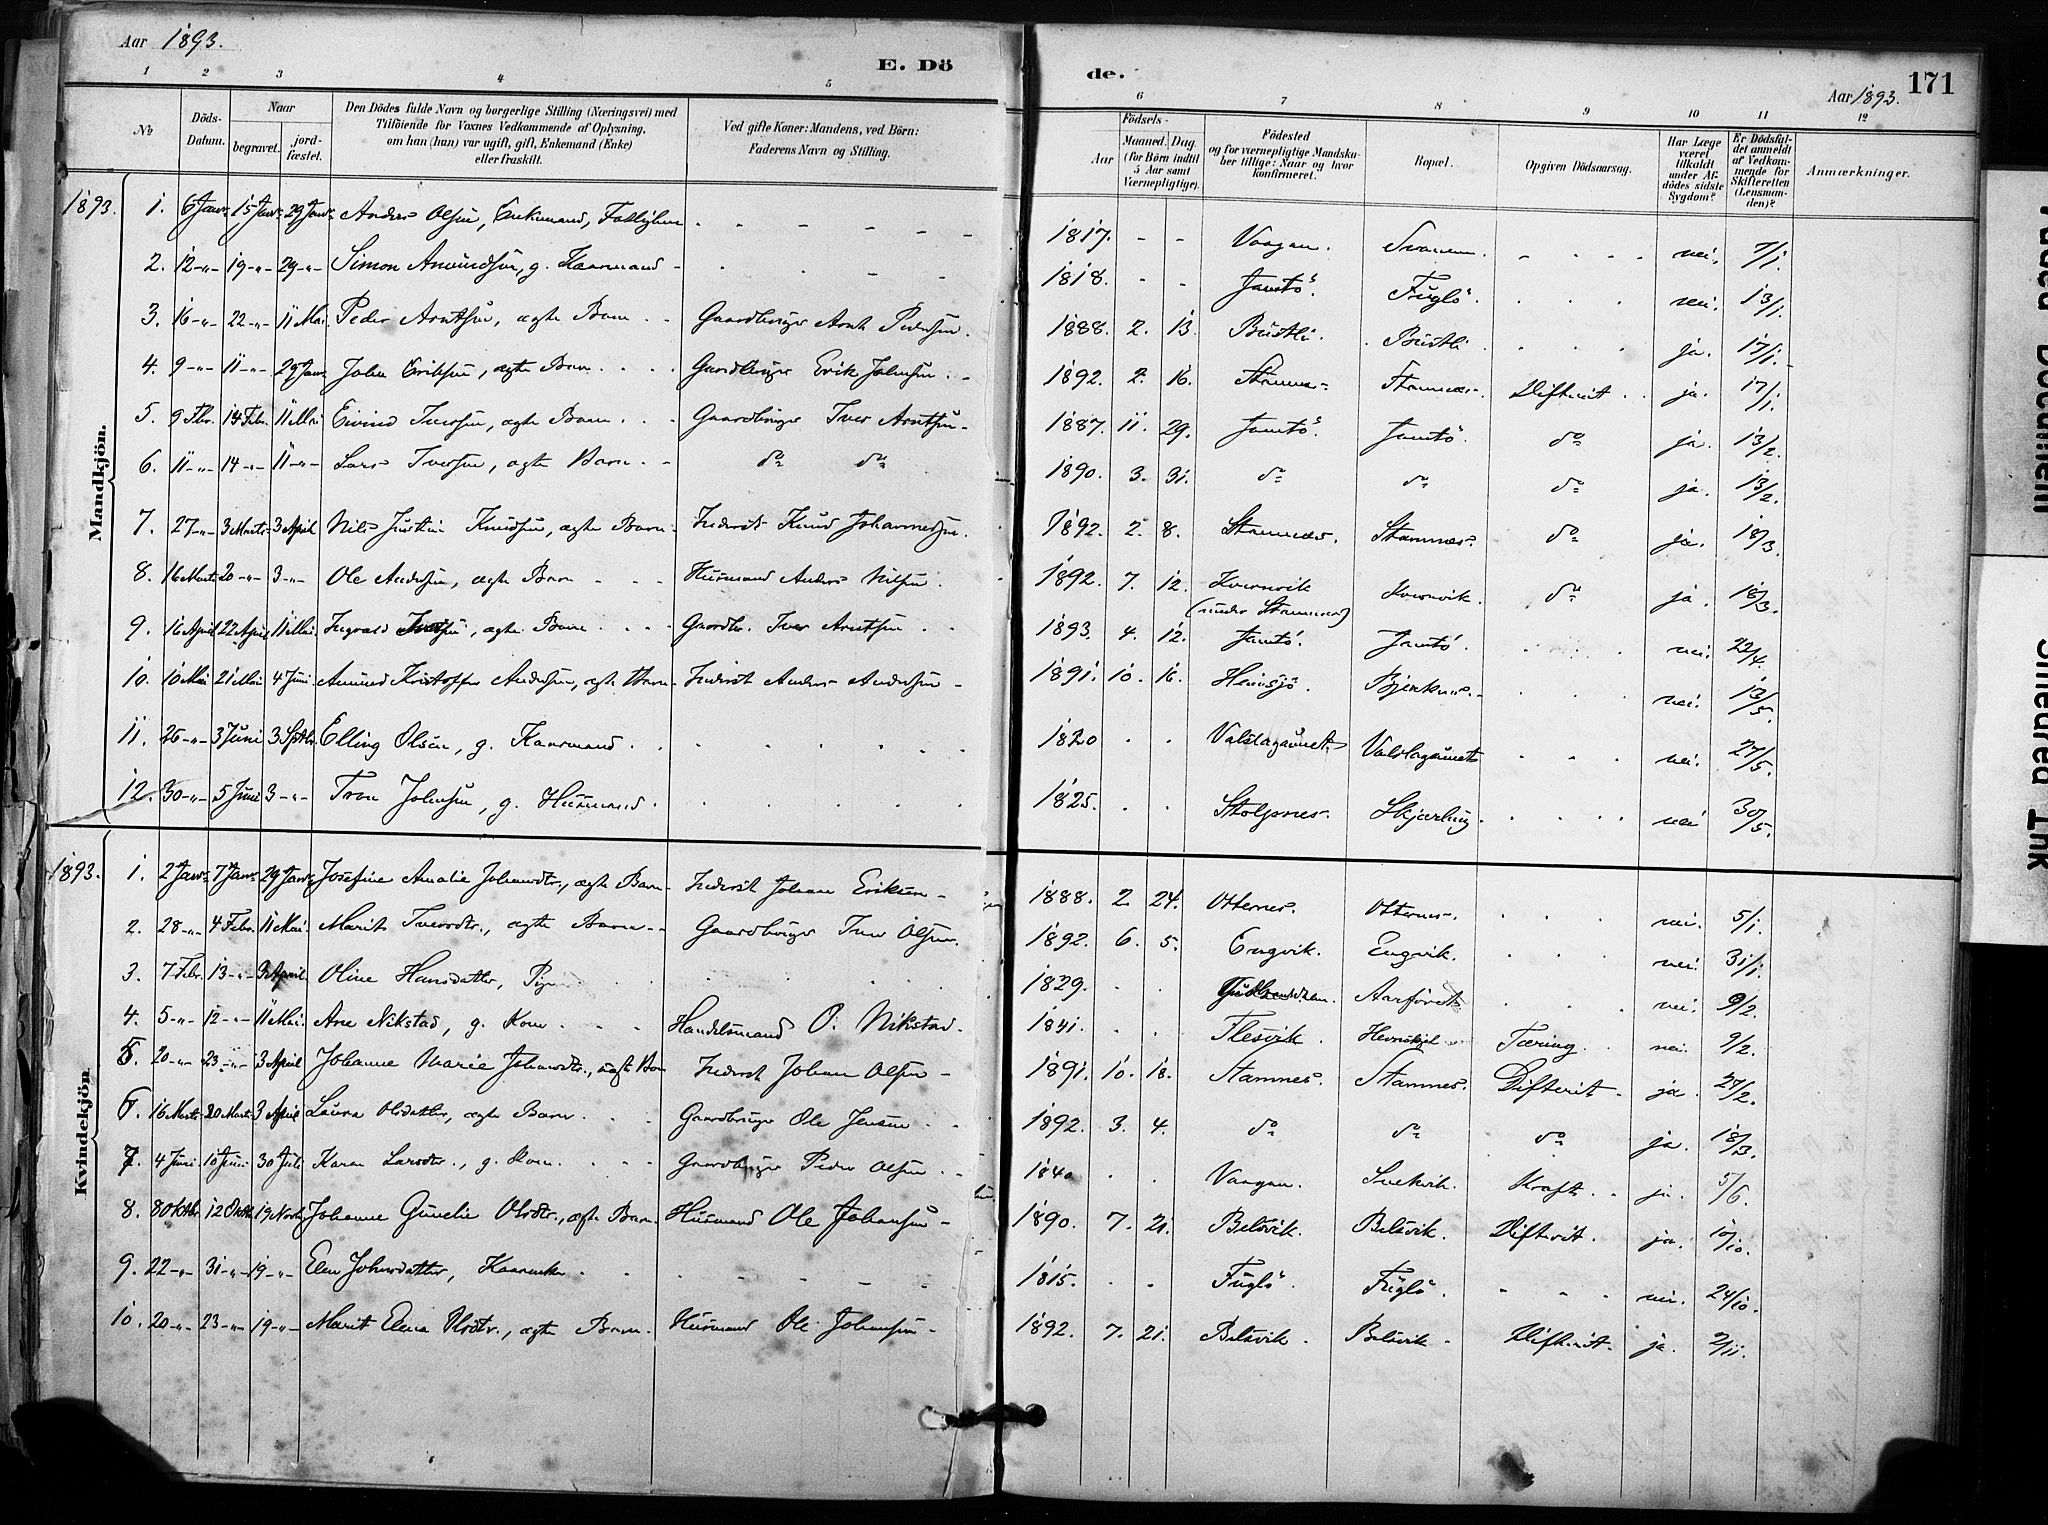 Aar 1893.
E. Dö
de.
Aar 1893.
171
1 2 3 4 5 6 7 8 9 10 11 12
No
Döds-Datum.
Naar
begravet.
jord-fæstet.
Den Dödes fulde Navn og borgerlige Stilling (Næringsvei) med
Tilföiende for Voxnes Vedkommende af Oplysning,
om han (hun) var ugift, gift, Enkemand (Enke)
eller fraskilt.
Ved gifte Koner: Mandens, ved Börn:
Faderens Navn og Stilling.
Födsels-
Aar
Maaned. Dag
(for Börn indtil
5 Aar samt
Værnepligtige).
Födested
og for værnepligtige Mandska-
ber tillige: Naar og hvor
konfirmeret.
Bopæl.
Opgiven Dödsaarsag.
Har Læge
været
tilkaldt
under Af-
dödes sidste
Sygdom?
Er Dödsfal-
det anmeldt
af Vedkom-
mende for
Skifteretten
(Lensman-
den)?
Anmærkninger.
Mandkjön.
1893. 1. 6 Janr. 15 Janr. 29 Janr. Anders Olsen, Enkemand, 1817. - - Vaagan. nei. 7/1.
2. 12-"- 19-"- 29-"- Simon Amundsen, g. Kaarmand - 1818. - - Jamtö. Fuglö. nei. 13/1.
3. 16-"- 22-"- 11 Mai Peder Arntsen, ægte Barn Gaardbruger Arnt Pedersen. 1888. 2. 13. Bustli. Bustli. ja. 17/1.
4. 9-"- 11-"- 29 Janr. John Eriksen, ægte Barn Gaardbruger Erik Johnsen 1892. 2. 16. Stamnes. Stamnes. Difterit ja. 17/1.
5. 9 Fbr. 14 Febr. 11 Mai Eivind Iversen, ægte Barn Gaardbruger Iver Arntsen 1887. 11. 29. Jamtö. Jamtö. do ja. 13/2.
6. 11-"- 14-"- 11-"- Lars Iversen, ægte Barn do do 1890. 3. 31. do do do ja. 13/2.
7. 27-"- 3 Marts 3 April Nils Justin Knudsen, ægte Barn Inderst Knud Johannessen. 1892. 2. 8. Stamnes. Stamnes. do ja. 18/3.
8. 16 Mart. 20-"- 3-"- Ole Andersen, ægte Barn Husmand Anders Nilsen. 1892. 7. 12. Kvernvik (under Stamnes) Kvernvik. do ja. 18/3.
9. 16 April 22 April 11 Mai. Ingvald Iversen, ægte Barn Gaardbr. Iver Arntsen 1893. 4. 12. Jamtö. Jamtö. nei. 22/4.
10. 10 Mai 21 Mai 4 Juni Amund Kristoffer Andersen, ægte Barn Inderst Anders Andersen 1891. 10. 16. Hemsjö. nei. 13/5.
11. 26-"- 3 Juni 3 Septbr. Elling Olsen, g. Kaarmand. 1820 Valslagaunet Valslagaunet nei. 27/5.
12. 30-"- 5 Juni 3-"- Tron Johnsen, g. Husmand. 1825. Stolpnes. Skjærling nei 30/5.
Kvindekjön.
1893. 1. 2 Janr. 7 Janr. 29 Janr. Josefine Amalie Johansdtr., ægte Barn Inderst Johan Eriksen 1888. 2. 24. Otternes. Otternes. nei. 5/1.
2. 28-"- 4 Febr. 11 Mai. Marit Iversdtr., ægte Barn Gaardbruger Iver Olsen. 1892. 6. 5. Engvik. Engvik. nei. 31/1.
3. 7 Febr. 13-"- 3 April Oline Hansdatter, Pige 1829. nei. 9/2.
4. 5-"- 12-"- 11 Mai. Ane Nikstad, g. Kone Handelsmand O. Nikstad. 1841. Flesvik. Tæring. nei. 9/2.
5. 20-"- 23-"- 3 April Johanne Marie Johansdtr., ægte Barn Inderst Johan Olsen 1891. 10. 18. Stamnes. Stamnes. Difterit. ja. 27/2.
6. 16 Mart. 20 Mart. 3 April Laura Olsdatter, ægte Barn Gaardbruger Ole Jensen 1892. 3. 4. do do do ja. 18/3.
7. 4 Juni 10 Juni 30 Juli Karen Larsdtr., g. Kone. Gaardbruger Peder Olsen 1840 Vaagan. Kræft ja. 5/6.
8. 8 Oktbr. 12 Oktbr. 19 Novbr. Johanne Gurelie Olsdtr., ægte Barn Husmand Ole Johansen 1890. 7. 21. Belsvik. Belsvik. Difterit. ja. 10/10.
9. 22-"- 31-"- 19-"- Elen Johnsdatter, Kaarenke 1815. Fuglö. Fuglö. nei. 24/10.
10. 20-"- 23-"- 19-"- Marit Elena Olsdtr., ægte Barn. Husmand Ole Johansen 1892. 7. 21. Belsvik Belsvik Difterit. ja. 2/11.